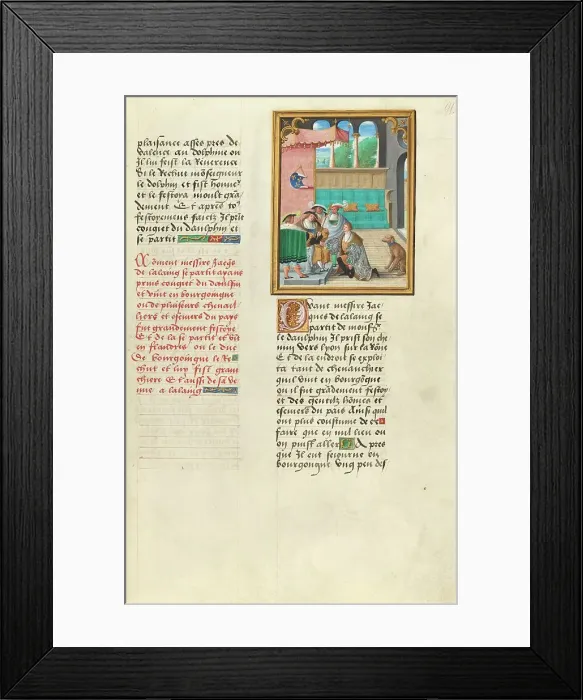 plaisance asses pres de
valence au dolphin ou
Il luy feist la Reverence
Et le Rechut mōseigneur
le dolphin et fist hōneᵗ
et le festoya moult grā
dement Et apres toᵍ
festoyemens faictz Il prīt
congiet du daulphin et
se partit
Cōment messire Jacqˢ
de lalaing se partit ayant
prins congiet du daulfin
et vint en bourgoingne
ou de plusieurs cheual
liers et escuiers du pays
fut grandement festoye
Et de la se partit et vīt
en flandres ou le duc
de bourgoingne le Re
chut et luy fist grant
chiere Et aussi de sa ve
nue a lalaing
Quant messire Jac
ques de lalaing se
partit de monsʳ
le daulphin Il prist son che
min vers lyon sur la Rōne
Et de la endroit se exploi
ta tant de cheuaucher
quil vint en bourgōgne
ou il fut grādement festoy
et des gentilz hōmes et
escuiers du pais ainsi quil
ont plus coustume de ce
faire que en nul lieu ou
on puist aller Apres
que Il eut seiourne en
bourgongne vng peu des